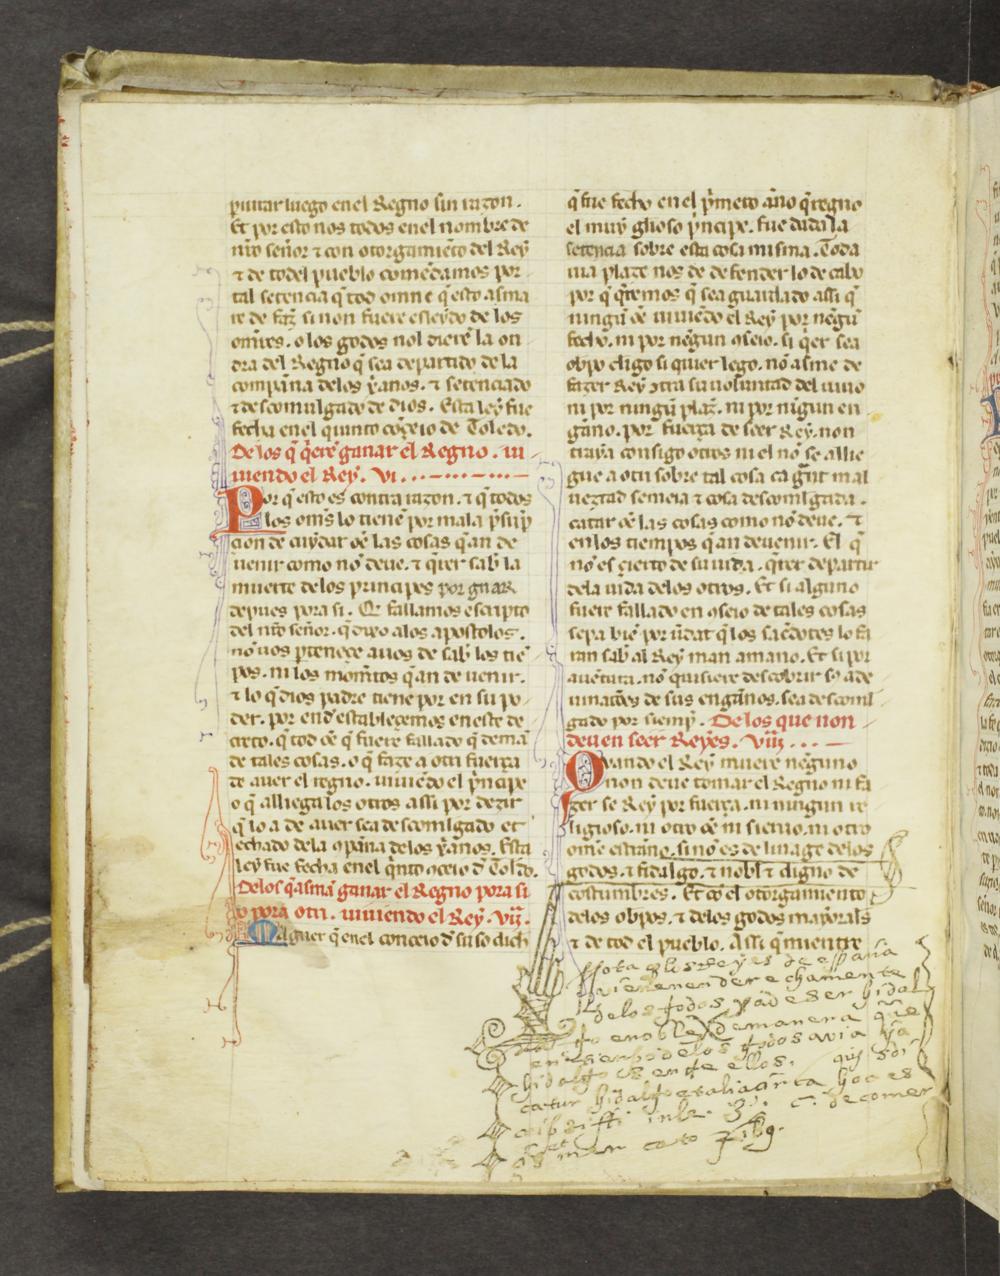 puiar luego en el Regno sin razon.
Et por esto nos todos en el nombre de
nr̃o señor ⁊ con otorgamiẽto del Rey
⁊ de todel pueblo comẽdamos por
tal setencia q̃ tod omne q̃ esto asma
re de faz̃ si non fuere esleydo de los
om̃es. o los godos nol dierẽ la on
dra del Regno q̃ sea departido de la
compãna delos xp̃anos. ⁊ setenciado
⁊ descomulgado de dios. Esta ley fue
fecha en el quinto cõçeio de Toledo.
De los q̃ q̃rẽ ganar el Regno. ui
uiendo el Rey. vi.
Por q̃ esto es contra razon. ⁊ q̃ todos
los om̃s lo tienẽ por mala p̃sup̃
cion de cuydar õe las cosas q̃ an de
uenir como nõ deue. ⁊ q̃rer sab̃ la
muerte delos principes por gnar
depues pora si. Ca fallamos escripto
del nr̃o señor. q̃ dixo alos apostolos.
nõ uos ꝑtenece auos de sab̃ los tiẽ
pos. ni los mom̃tos q̃ an de uenir.
⁊ lo q̃ dios padre tiene por en su po
der. por end establecemos en este de
creto. q̃ tod õe q̃ fuere fallado q̃ demã
de tales cosas. o q̃ faze a otri fuerça
de auer el regno. uiuiẽdo el p̃ncipe
o q̃ allega los otros assi por dezir
q̃ lo a de auer sea descomlgado et
echado dela ↄpãna delos xp̃anos. Esta
ley fue fecha en el q̃nto ↄceio d̃ Toldo.
Delos q̃ asmã ganar el Regno pora si
o pora otri. uiuiendo el Rey. vii.
Maguer q̃ en el conceio d̃ suso dich
q̃ fue fecho en el p̃mero ãno q̃ regno
el muy glioso p̃ncipe. fue dada la
setencia sobre esta cosa misma. Toda
uia plaze nos de defender lo de cabo
por q̃ q̃remos q̃ sea guardado assi q̃
ningũ õe uiuiẽdo el Rey por nẽgũ
fecho. ni por nẽgun ↄseio. si q̃er sea
obp̃o cligo si quier lego. nõ asme de
fazer Rey ↄtra su uoluntad del uiuo
ni por ningũ plaz̃. ni por nĩgun en
gãno. por fuerça de seer Rey. non
traya consigo otros ni el nõ se alle
gue a otri sobre tal cosa ca gr̃nt mal
ueztad semeia ⁊ cosa descomlgada.
catar õe las cosas como nõ deue. ⁊
en los tiempos q̃ an deuenir. El q̃
nõ es çierto de su uida. q̃rer departir
dela uida delos otros. Et si alguno
fuere fallado en ↄseio de tales cosas
sepa biẽ por ũdat q̃ los sac̃dotes lo fa
ran sab̃ al Rey man amano. Et si por
auẽtura. nõ quisiere descobrir los ade
uinadõres de sus engãnos. sea descoml
gado por siemp̃. De los que non
deuen seer Reyes. viii.
Quando el Rey muere nenguno
non deue tomar el Regno ni fa
zer se Rey por fuerça. ni ningun re
ligioso. ni otro õe ni sieruo. ni otro
om̃e estrãne. sinõ es de linage delos
godos. ⁊ fidalgo. ⁊ nobl̃ ⁊ digno de
costumbres. Et cõ el otorgamiento
delos obp̃os. ⁊ delos godos mayorals
⁊ de tod el pueblo. Assi q̃ mientre
Nota q̃ los reyes de españa
vienen derechamente
delos godos y ãd eser hidal
go e noble De manera que
en tienpo delos godos avia ya
hidalgos entre ellos. quis di
catur hidalgo